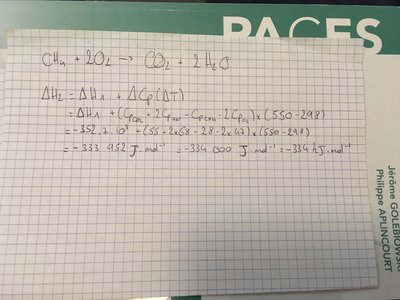 PACES
CH4 + 2O2 → CO2 + 2H2O
ΔH2 = ΔH1 + ΔCp(ΔT)
= ΔH1 + (CpCO2 + 2CpH2O - CpCH4 - 2CpO2) × (550-298)
= -352,7.10³ + (55 + 2×68 - 28 - 2×47) × (550-298)
= -333 952 J.mol⁻¹ = -334 000 J.mol⁻¹ = -334 kJ.mol⁻¹
Jérôme GOLEBIOWSKI
Philippe APLINCOURT